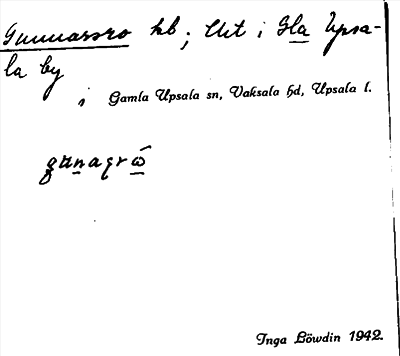 Gunnarsro hb ; Urt i Gla Upsa-
la by
i Gamla Upsala sn, Vaksala hd, Upsala l.
gunaqrω̂
Inga Löwdin 1942.